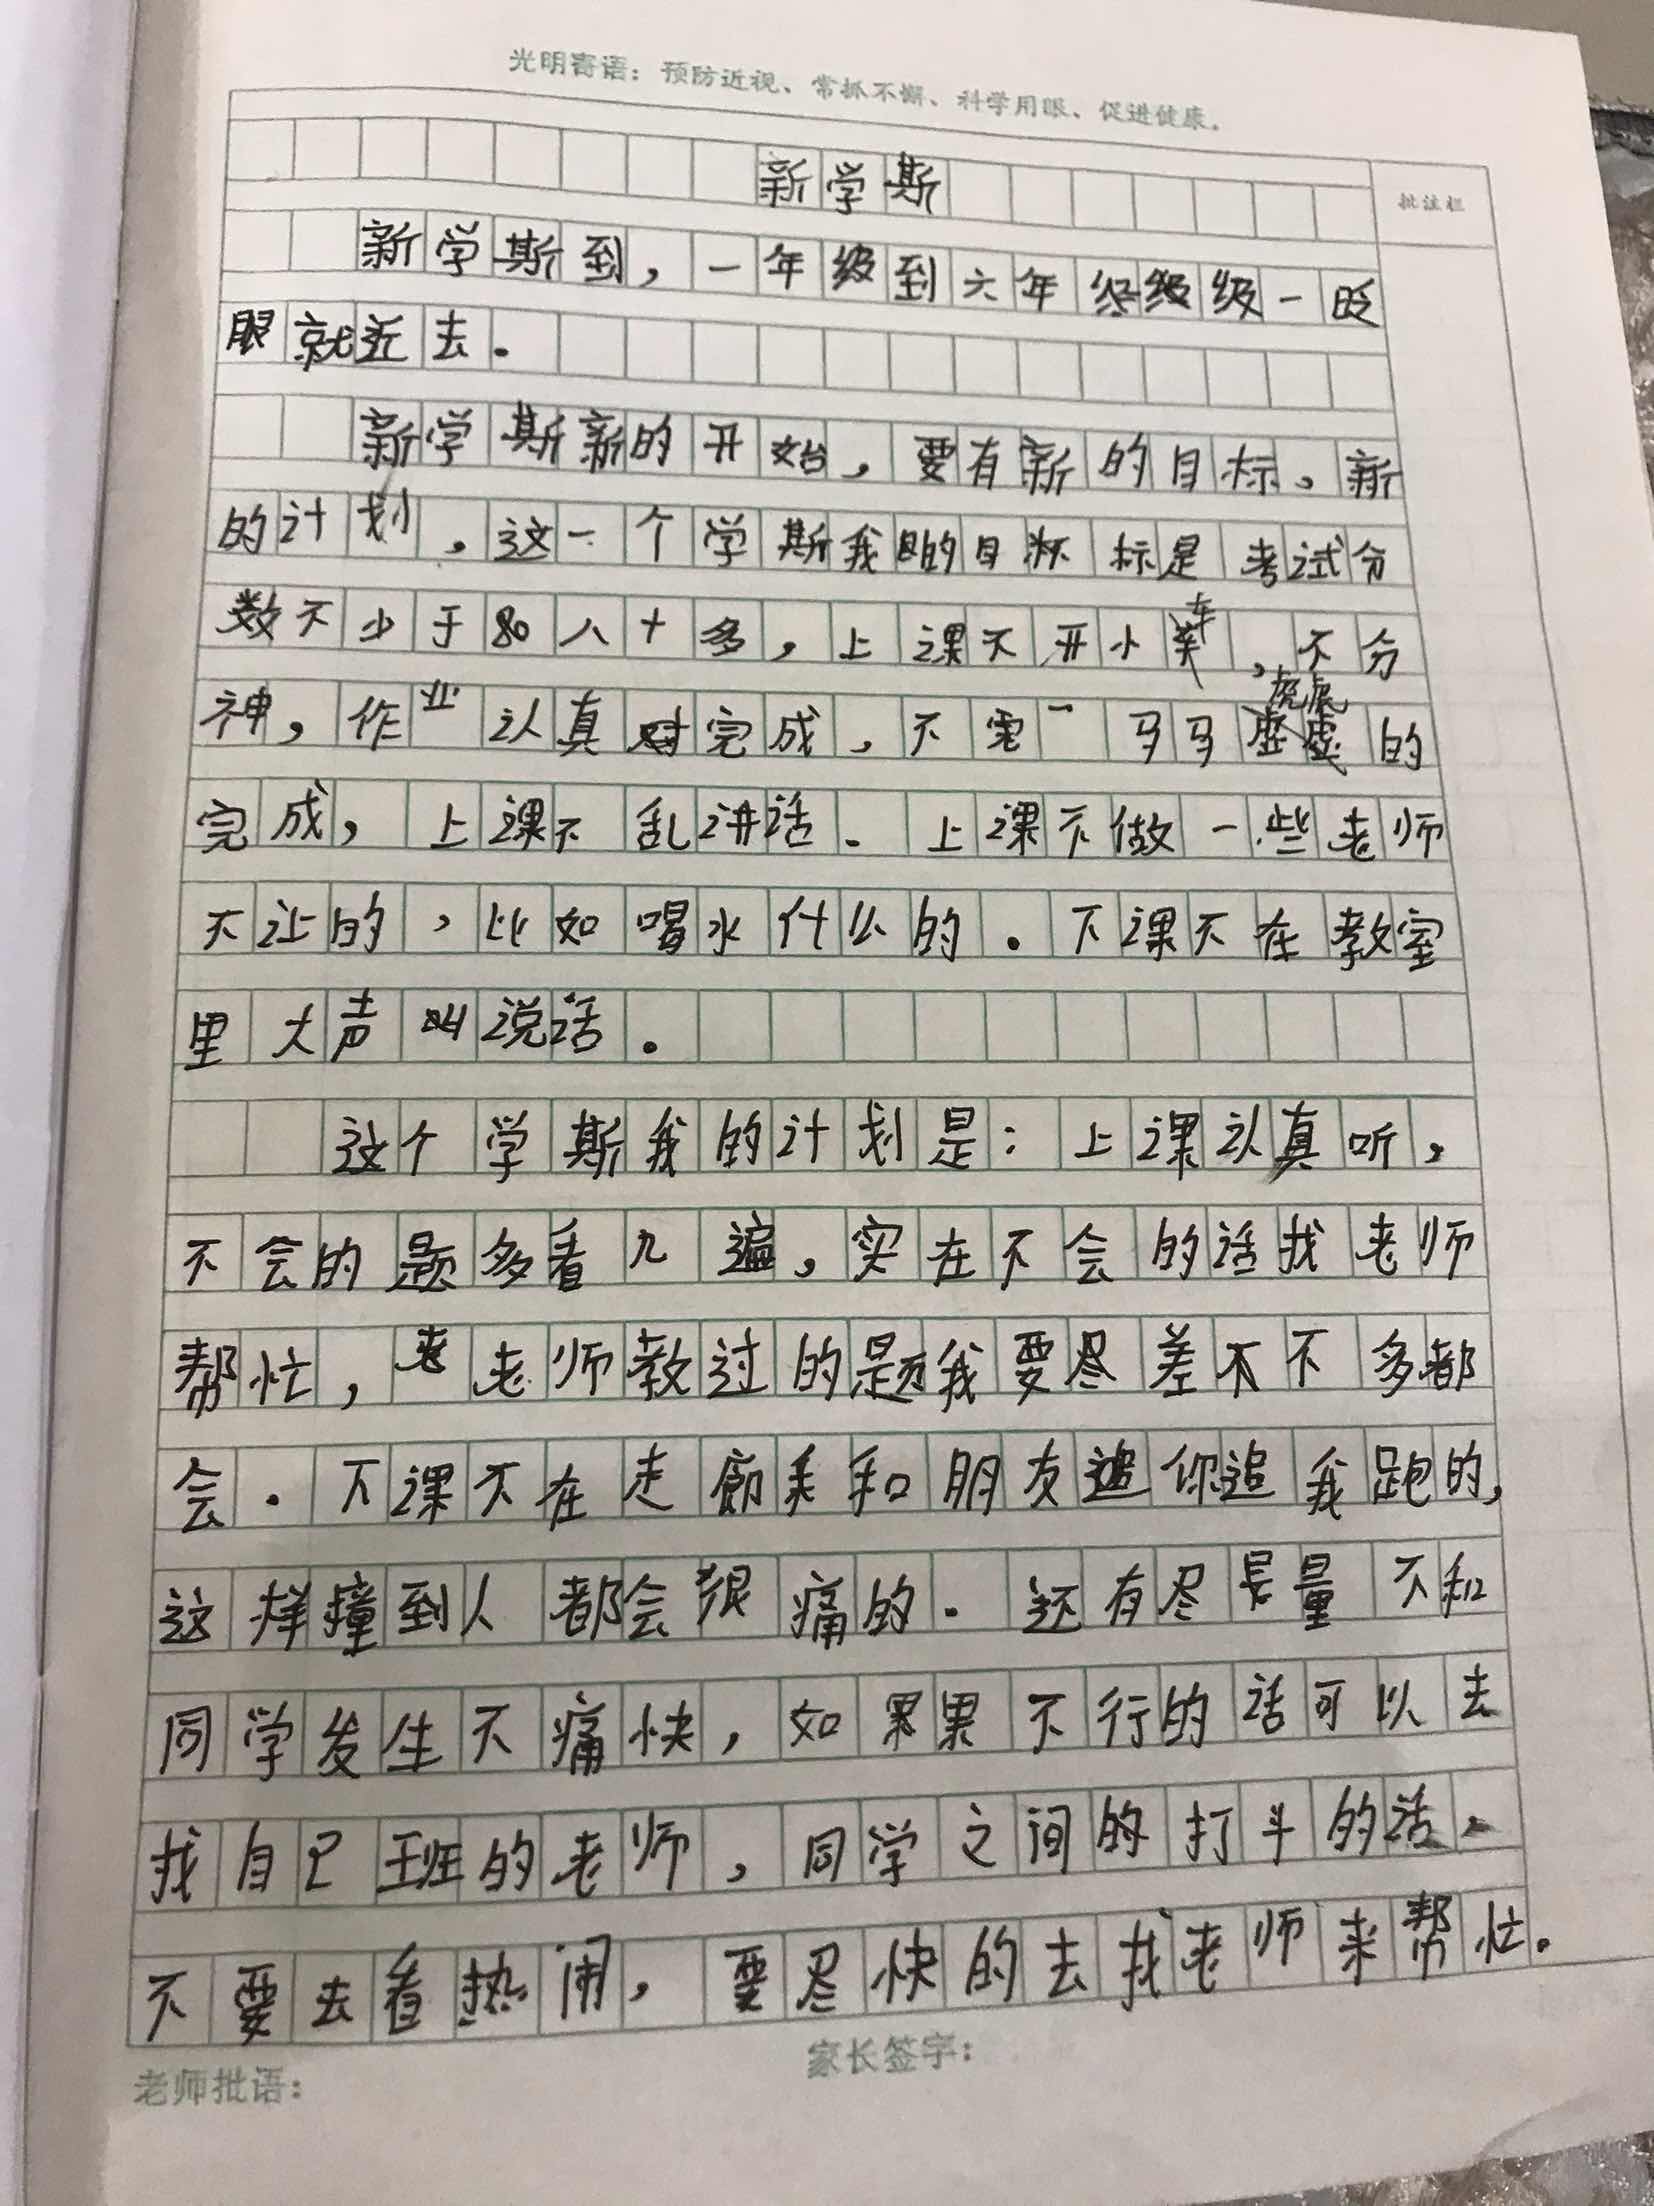 光明寄语：预防近视、常抓不懈、科学用眼、促进健康。
批注栏
新学斯
新学斯到，一年级到六年级级级一眨
眼就近去。
新学斯新的开始，要有新的目标。新
的计划。这一个学斯我的目标是考试分
数不少于80八十多，上课不开小车，不分
神，作业认真完成，不要马马虎虎的
完成，上课不乱讲话。上课不做一些老师
不让的，比如喝水什么的。下课不在教室
里大声叫说话。
这个学斯我的计划是：上课认真听，
不会的题多看几遍，实在不会的话找老师
帮忙，老老师教过的题我要尽差不不多都
会。下课不在走廊和朋友追你追我跑的，
这样撞到人都会很痛的。还有尽量不和
同学发生不痛快，如果果不行的话可以去
找自己班的老师，同学之间的打斗的话，
不要去看热闹，要尽快的去找老师来帮忙。
家长签字：
老师批语：